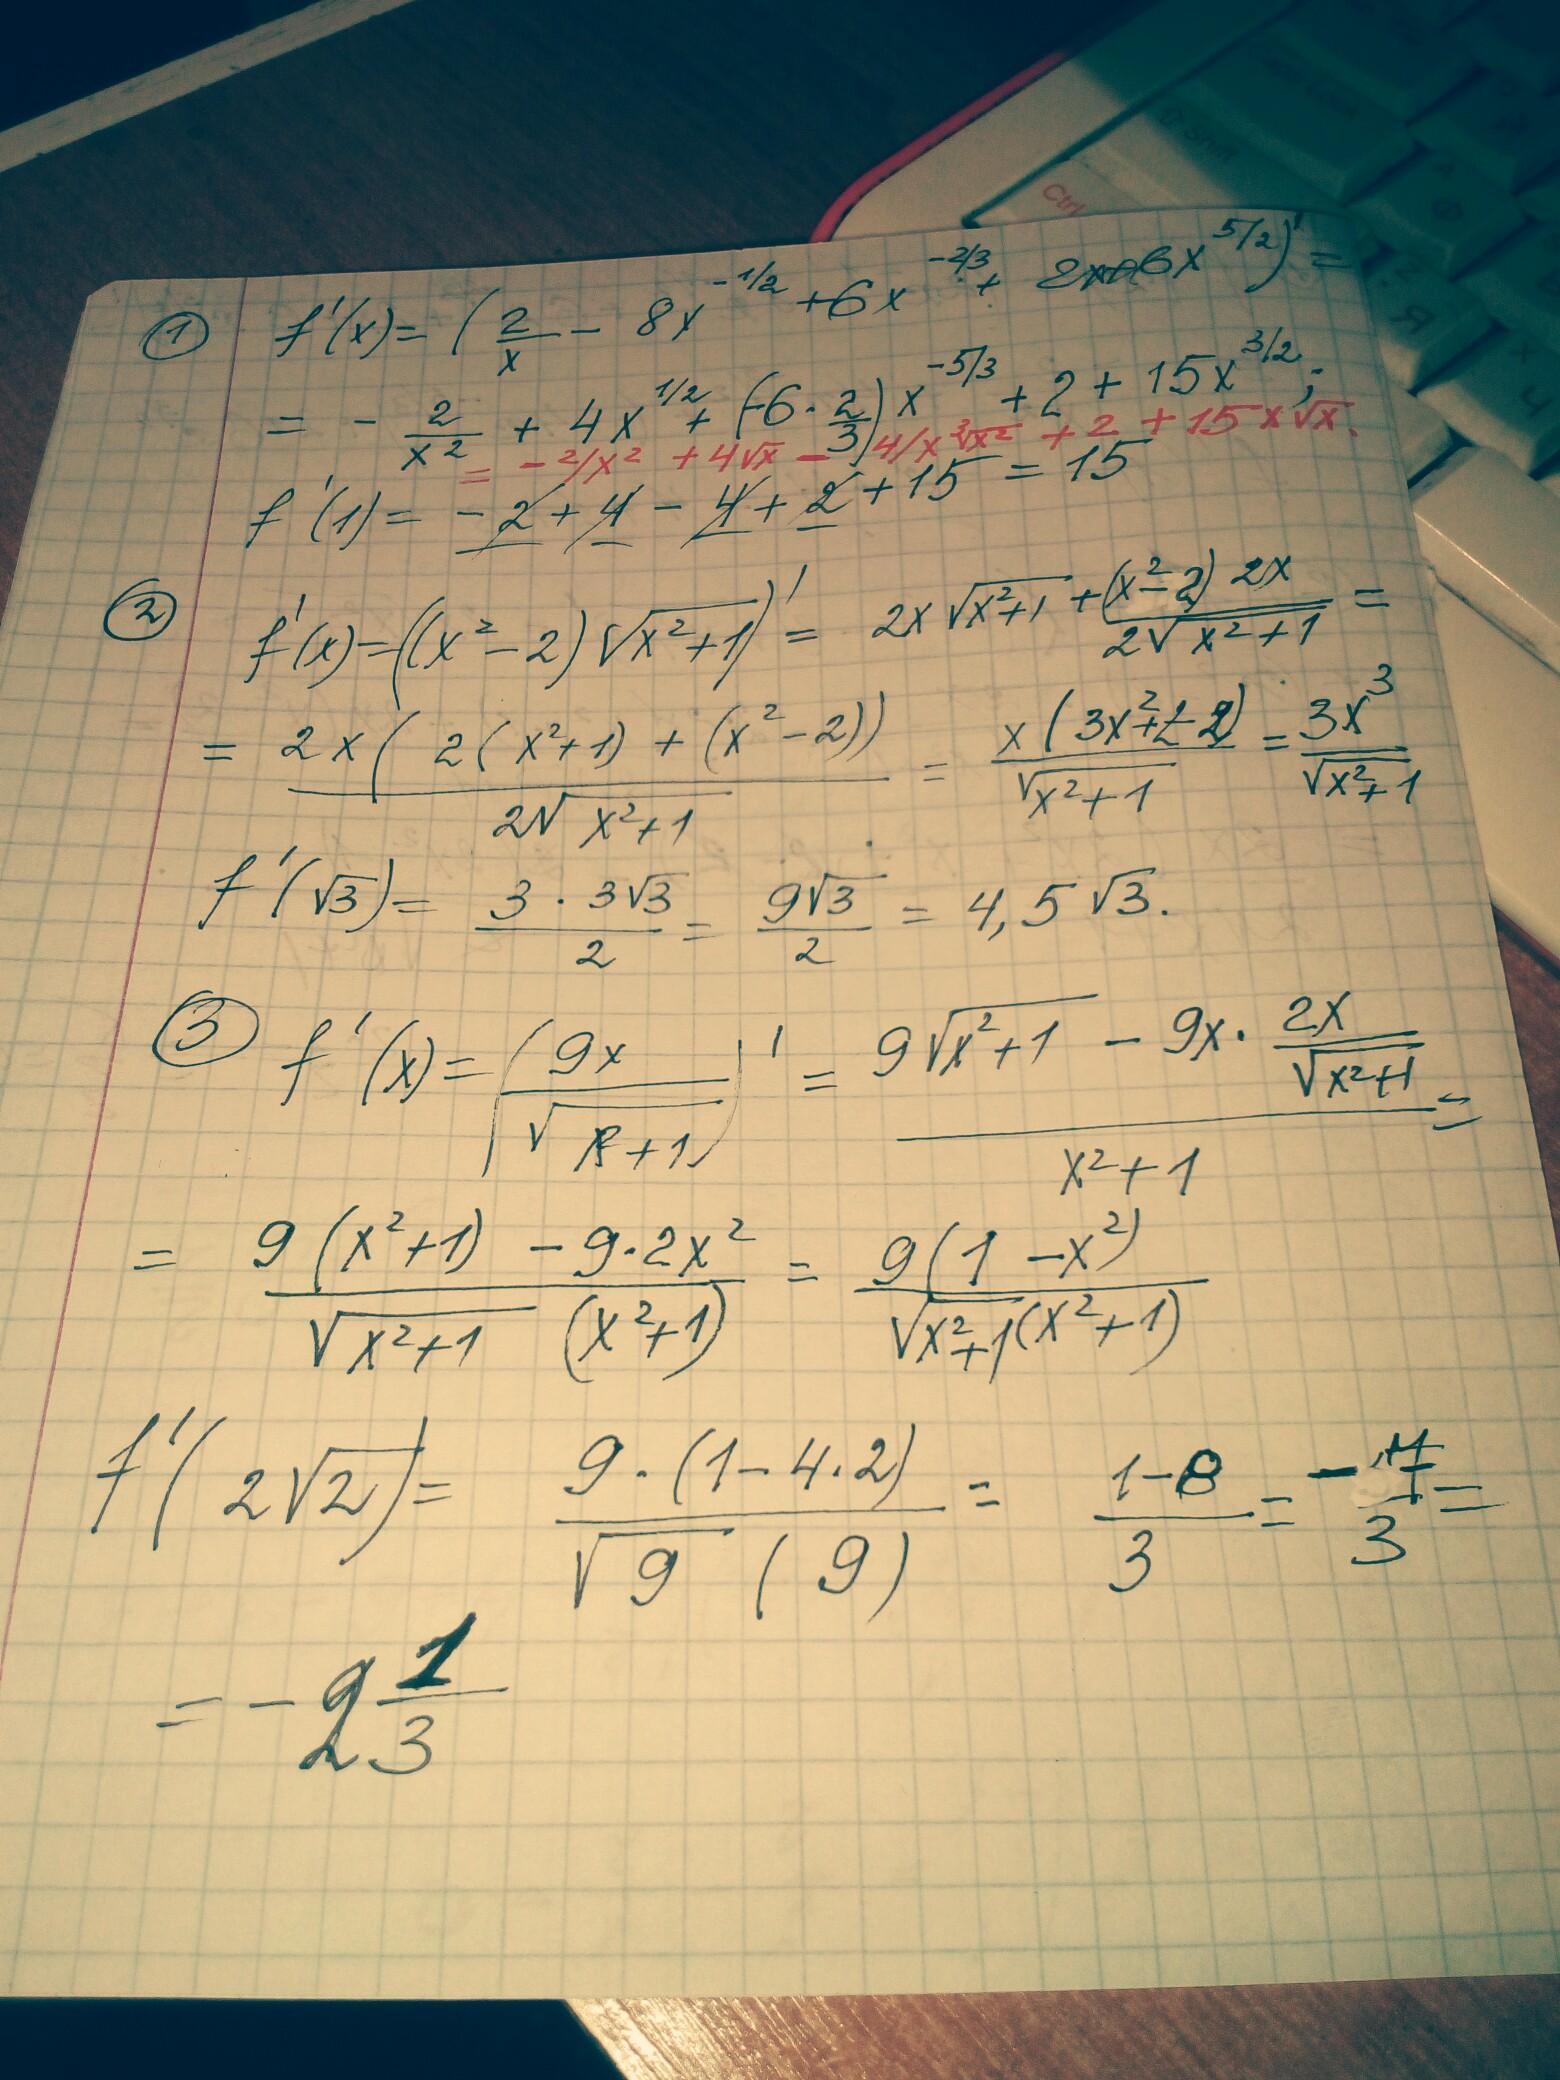 ① f'(x) = (2/x - 8x^-1/2 + 6x^-2/3 + 2x + 6x^5/2)' =
= - 2/x² + 4x^1/2 + (-6 · 2/3) x^-5/3 + 2 + 15x^3/2;
= -2/x² + 4√x - 4/x ∛x² + 2 + 15x√x.
f'(1) = -2 + 4 - 4 + 2 + 15 = 15
② f'(x) = ((x² - 2) √(x²+1))' = 2x √(x²+1) + (x² - 2) 2x / 2√(x²+1) =
= 2x ( 2(x²+1) + (x² - 2)) / 2√(x²+1) = x (3x² + 2 - 2) / √(x²+1) = 3x³ / √(x²+1)
f'(√3) = 3 · 3√3 / 2 = 9√3 / 2 = 4,5 √3.
③ f'(x) = (9x / √(x²+1))' = (9√(x²+1) - 9x · 2x / √(x²+1)) / (x²+1) =
= (9 (x²+1) - 9·2x²) / √(x²+1) (x²+1) = 9(1 - x²) / √(x²+1) (x²+1)
f'(2√2) = 9 · (1 - 4·2) / √9 (9) = (1-8) / 3 = - 7/3 =
= - 2 1/3
Ctrl
Shift
Я
Ч
Ф